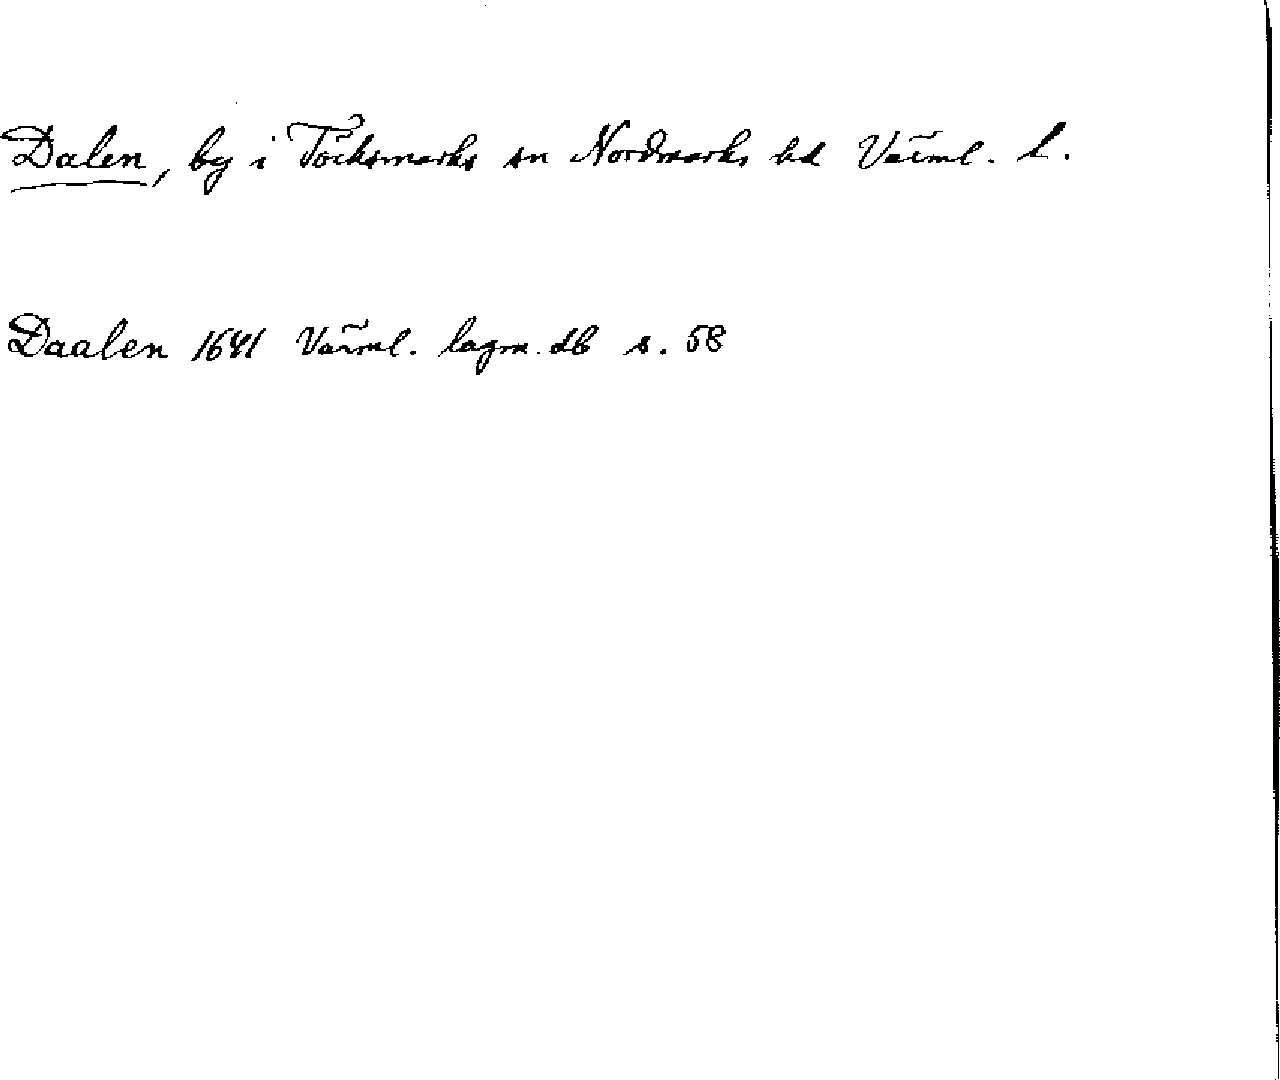 Dalen, by i Töcksmarks sn Nordmarks hd Värml. l.
Daalen 1641 Värml. lagm. db s. 58